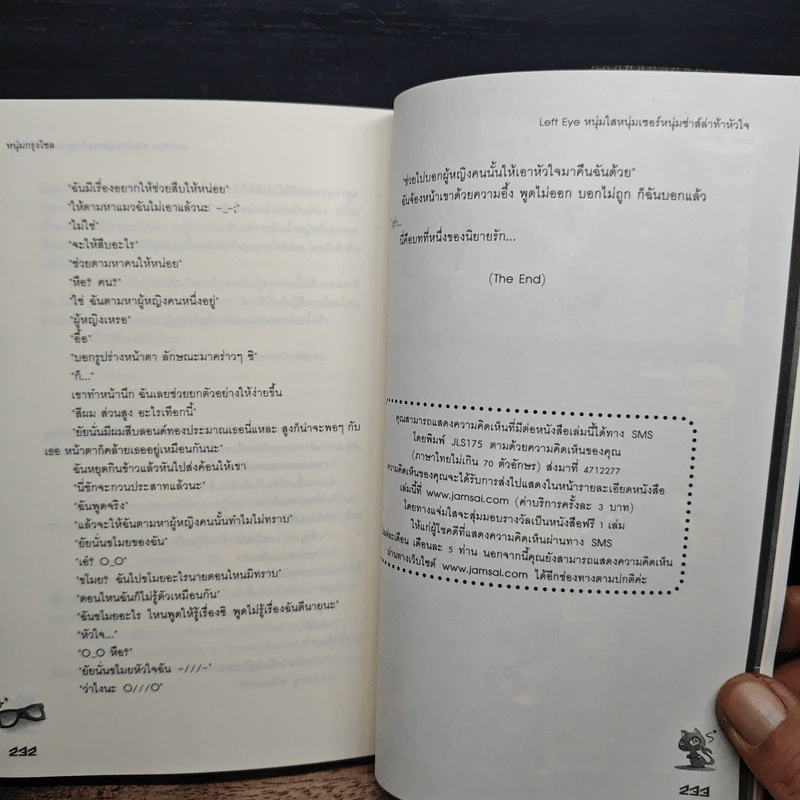 หนุ่มกรุงโซล
"ฉันมีเรื่องอยากให้ช่วยสืบให้หน่อย"
"ให้ตามหาแมวฉันไม่เอาแล้วนะ -_-;"
"ไม่ใช่"
"จะให้สืบอะไร"
"ช่วยตามหาคนให้หน่อย"
"หือ? คน?"
"ใช่ ฉันตามหาผู้หญิงคนหนึ่งอยู่"
"ผู้หญิงเหรอ"
"อื้อ"
"บอกรูปร่างหน้าตา ลักษณะมาคร่าวๆ ซิ"
"ก็..."
เขาทำหน้านึก ฉันเลยช่วยยกตัวอย่างให้ง่ายขึ้น
"สีผม ส่วนสูง อะไรเทือกนี้"
"ยัยนั่นมีผมสีบลอนด์ทองประมาณเธอนี่แหละ สูงก็น่าจะพอๆ กับ
เธอ หน้าตาก็คล้ายเธออยู่เหมือนกันนะ"
ฉันหยุดกินข้าวแล้วหันไปส่งค้อนให้เขา
"นี่ชักจะกวนประสาทแล้วนะ"
"ฉันพูดจริง"
"แล้วจะให้ฉันตามหาผู้หญิงคนนั้นทำไมไม่ทราบ"
"ยัยนั่นขโมยของฉัน"
"เอ๋? O_O"
"ขโมย? ฉันไปขโมยอะไรนายตอนไหนมิทราบ"
"ตอนไหนฉันก็ไม่รู้ตัวเหมือนกัน"
"ฉันขโมยอะไร ไหนพูดให้รู้เรื่องซิ พูดไม่รู้เรื่องฉันตีนายนะ"
"หัวใจ..."
"O_O หือ?"
"ยัยนั่นขโมยหัวใจฉัน -///-"
"ว่าไงนะ O///O"
232
Left Eye หนุ่มใสหนุ่มเซอร์หนุ่มซ่าส์ล่าท้าหัวใจ
"ช่วยไปบอกผู้หญิงคนนั้นให้เอาหัวใจมาคืนฉันด้วย"
ฉันจ้องหน้าเขาด้วยความอึ้ง พูดไม่ออก บอกไม่ถูก ก็ฉันบอกแล้ว
นี่คือบทที่หนึ่งของนิยายรัก...
(The End)
คุณสามารถแสดงความคิดเห็นที่มีต่อหนังสือเล่มนี้ได้ทาง SMS
โดยพิมพ์ JLS175 ตามด้วยความคิดเห็นของคุณ
(ภาษาไทยไม่เกิน 70 ตัวอักษร) ส่งมาที่ 4712277
ความคิดเห็นของคุณจะได้รับการส่งไปแสดงในหน้ารายละเอียดหนังสือ
เล่มนี้ที่ www.jamsai.com (ค่าบริการครั้งละ 3 บาท)
โดยทางแจ่มใสจะสุ่มมอบรางวัลเป็นหนังสือฟรี 1 เล่ม
ให้แก่ผู้โชคดีที่แสดงความคิดเห็นผ่านทาง SMS
เดือนละ 5 ท่าน นอกจากนี้คุณยังสามารถแสดงความคิดเห็น
ผ่านทางเว็บไซต์ www.jamsai.com ได้อีกช่องทางตามปกติค่ะ
233